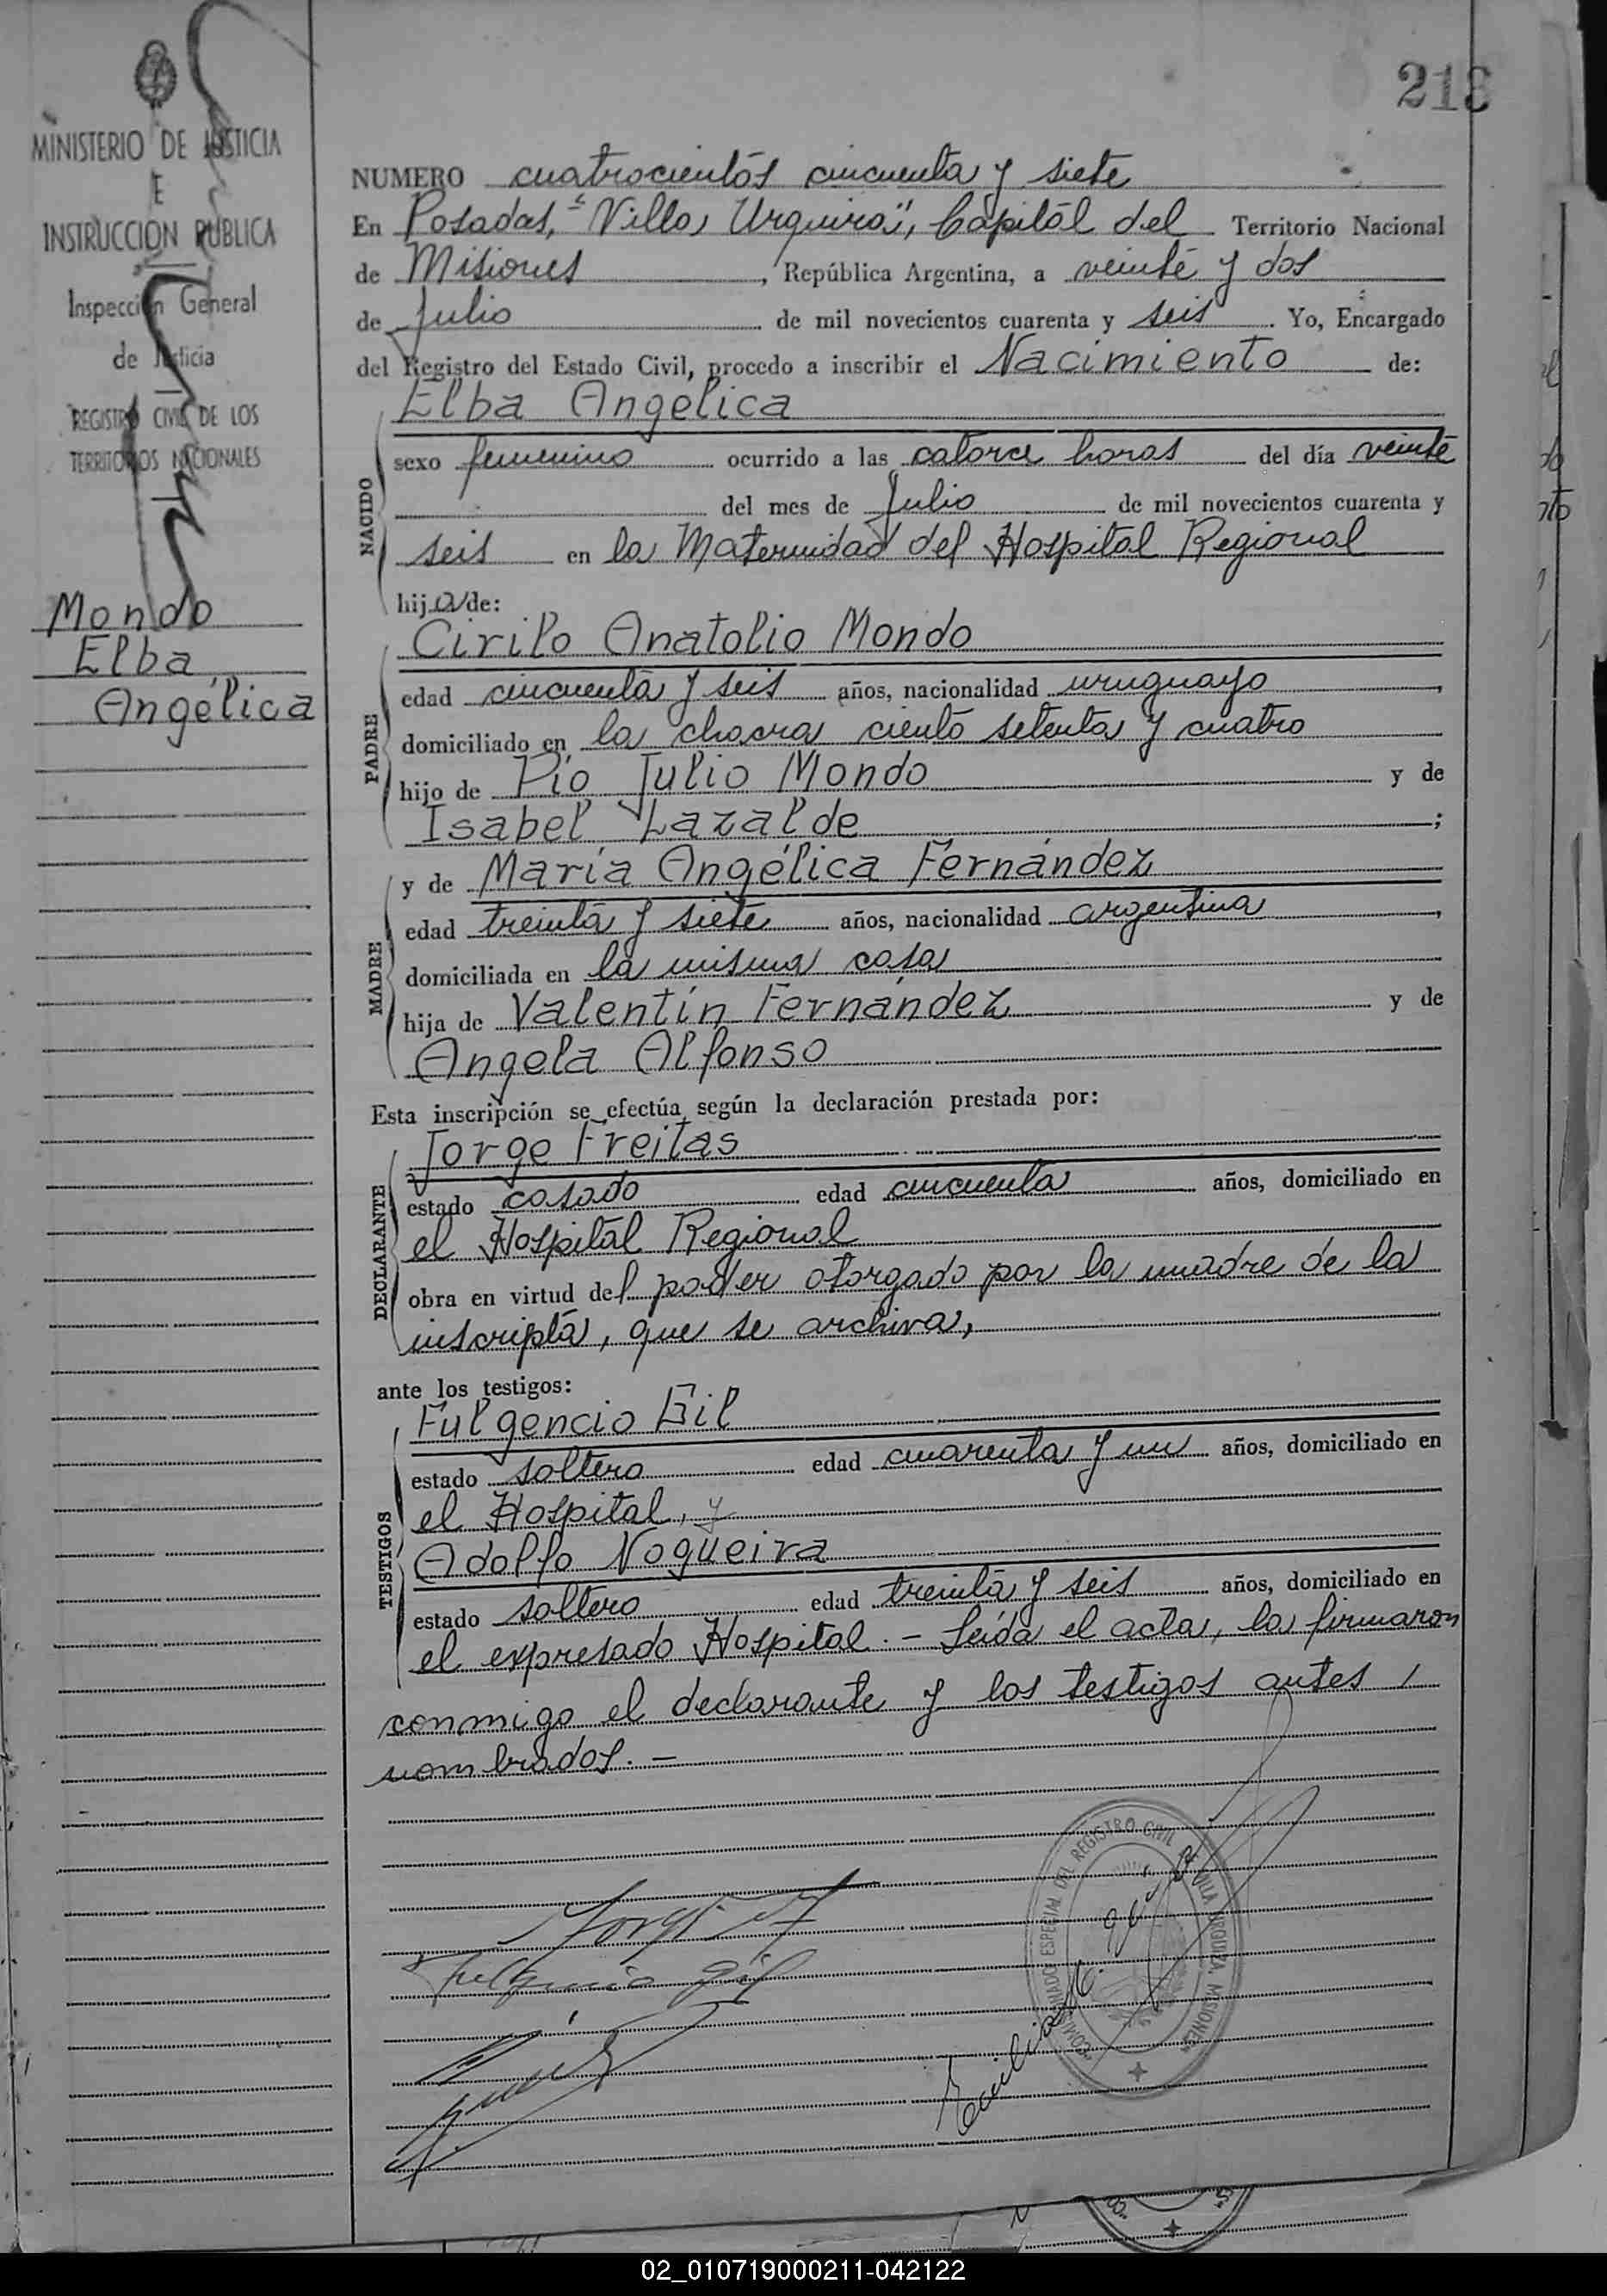 213
MINISTERIO DE JUSTICIA
E
INSTRUCCION PUBLICA
Inspección General
de Justicia
REGISTRO CIVIL DE LOS
TERRITORIOS NACIONALES
Mondo
Elba
Angélica
NUMERO cuatrocientos cincuenta y siete
En Posadas, "Villa Urquiza", Capital del Territorio Nacional
de Misiones, República Argentina, a veinte y dos
de Julio de mil novecientos cuarenta y seis. Yo, Encargado
del Registro del Estado Civil, procedo a inscribir el Nacimiento de:
Elba Angélica
NACIDO
sexo femenino ocurrido a las catorce horas del día veinte
del mes de Julio de mil novecientos cuarenta y
seis en la Maternidad del Hospital Regional
hija de:
Cirilo Anatolio Mondo
PADRE
edad cincuenta y seis años, nacionalidad uruguayo,
domiciliado en la chacra ciento setenta y cuatro
hijo de Pío Julio Mondo y de
Isabel Lazalde;
y de María Angélica Fernández
MADRE
edad treinta y siete años, nacionalidad argentina,
domiciliada en la misma casa
hija de Valentín Fernández y de
Angela Alfonso
Esta inscripción se efectúa según la declaración prestada por:
Jorge Freitas
DECLARANTE
estado casado edad cincuenta años, domiciliado en
el Hospital Regional
obra en virtud del poder otorgado por la madre de la
inscripta, que se archiva,
ante los testigos:
Fulgencio Gil
TESTIGOS
estado soltero edad cuarenta y un años, domiciliado en
el Hospital, y
Adolfo Nogueira
estado soltero edad treinta y seis años, domiciliado en
el expresado Hospital.- Leída el acta, la firmaron
conmigo el declarante y los testigos antes
nombrados.-
Fulgencio Gil
COMISIONADO ESPECIAL DEL REGISTRO CIVIL
VILLA URQUIZA MISIONES
02_010719000211-042122